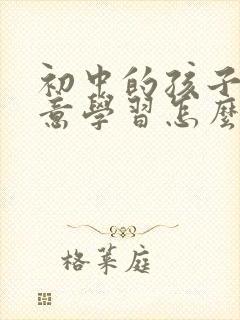 初中的孩子
意學習怎麼
格萊庭